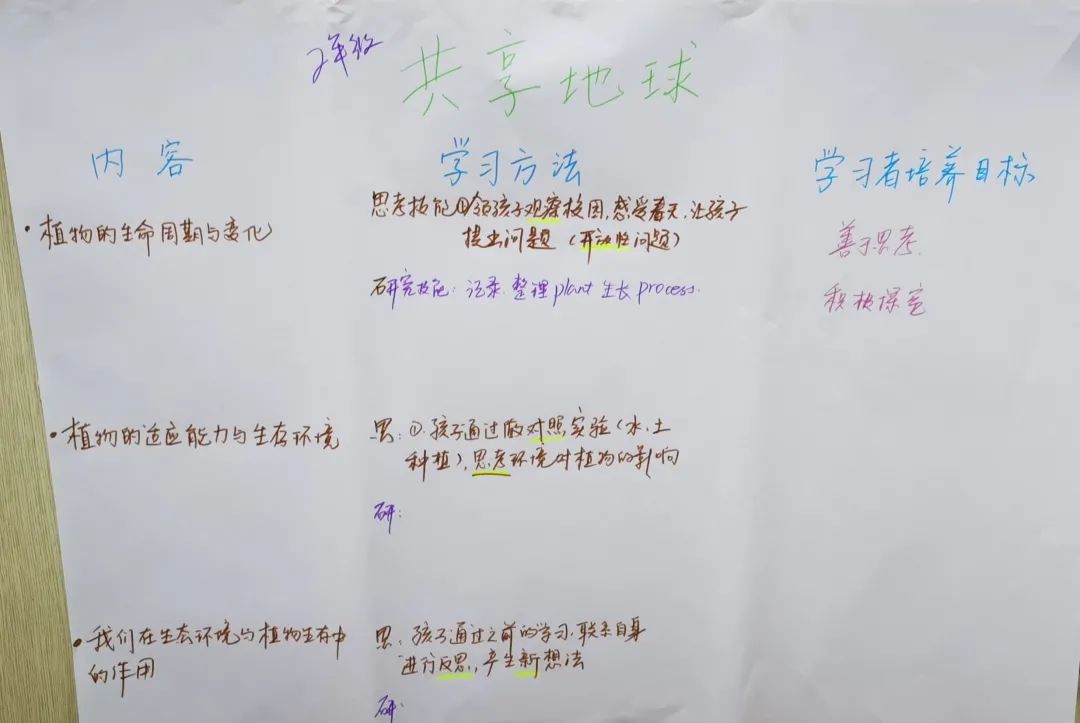 2年级
共享地球
内容
学习方法
学习者培养目标
·植物的生命周期与变化
思考技能①领孩子观察校园,感受春天,让孩子
提出问题(开放性问题)
研究技能:记录.整理plant生长process.
善于思考.
积极探究
·植物的适应能力与生态环境
思:①.孩子通过做对照实验(水、土
种植),思考环境对植物的影响
研:
·我们在生态环境与植物生存中
的作用
思:孩子通过之前的学习.联系自身
进行反思,产生新想法
研: